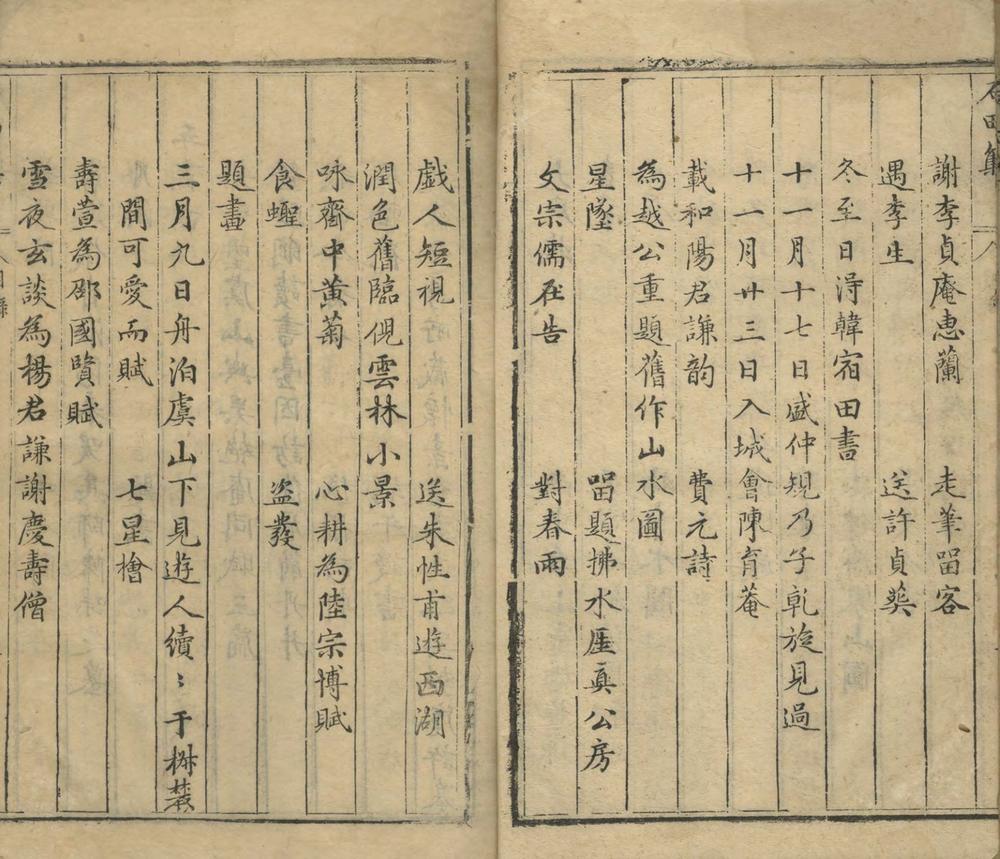 石田集
謝李貞庵惠蘭　走筆畱客
遇李生　送許貞葵
冬至日淂韓宿田書
十一月十七日盛仲規乃子乹旋見過
十一月廿三日入城會陳育菴
載和陽君謙韵　費元詩
為越公重題舊作山水圖
星墜　畱題拂水厓真公房
文宗儒在告　對春雨
戲人短視　送朱性甫遊西湖
潤色舊臨倪雲林小景
咏齋中黄菊　心耕為陸宗博賦
食蟶　盗發
題畫
三月九日舟泊虞山下見遊人續〻于樹菻
間可愛而賦　七星檜
壽萱為邵國賢賦
雪夜玄談為楊君謙謝慶壽僧